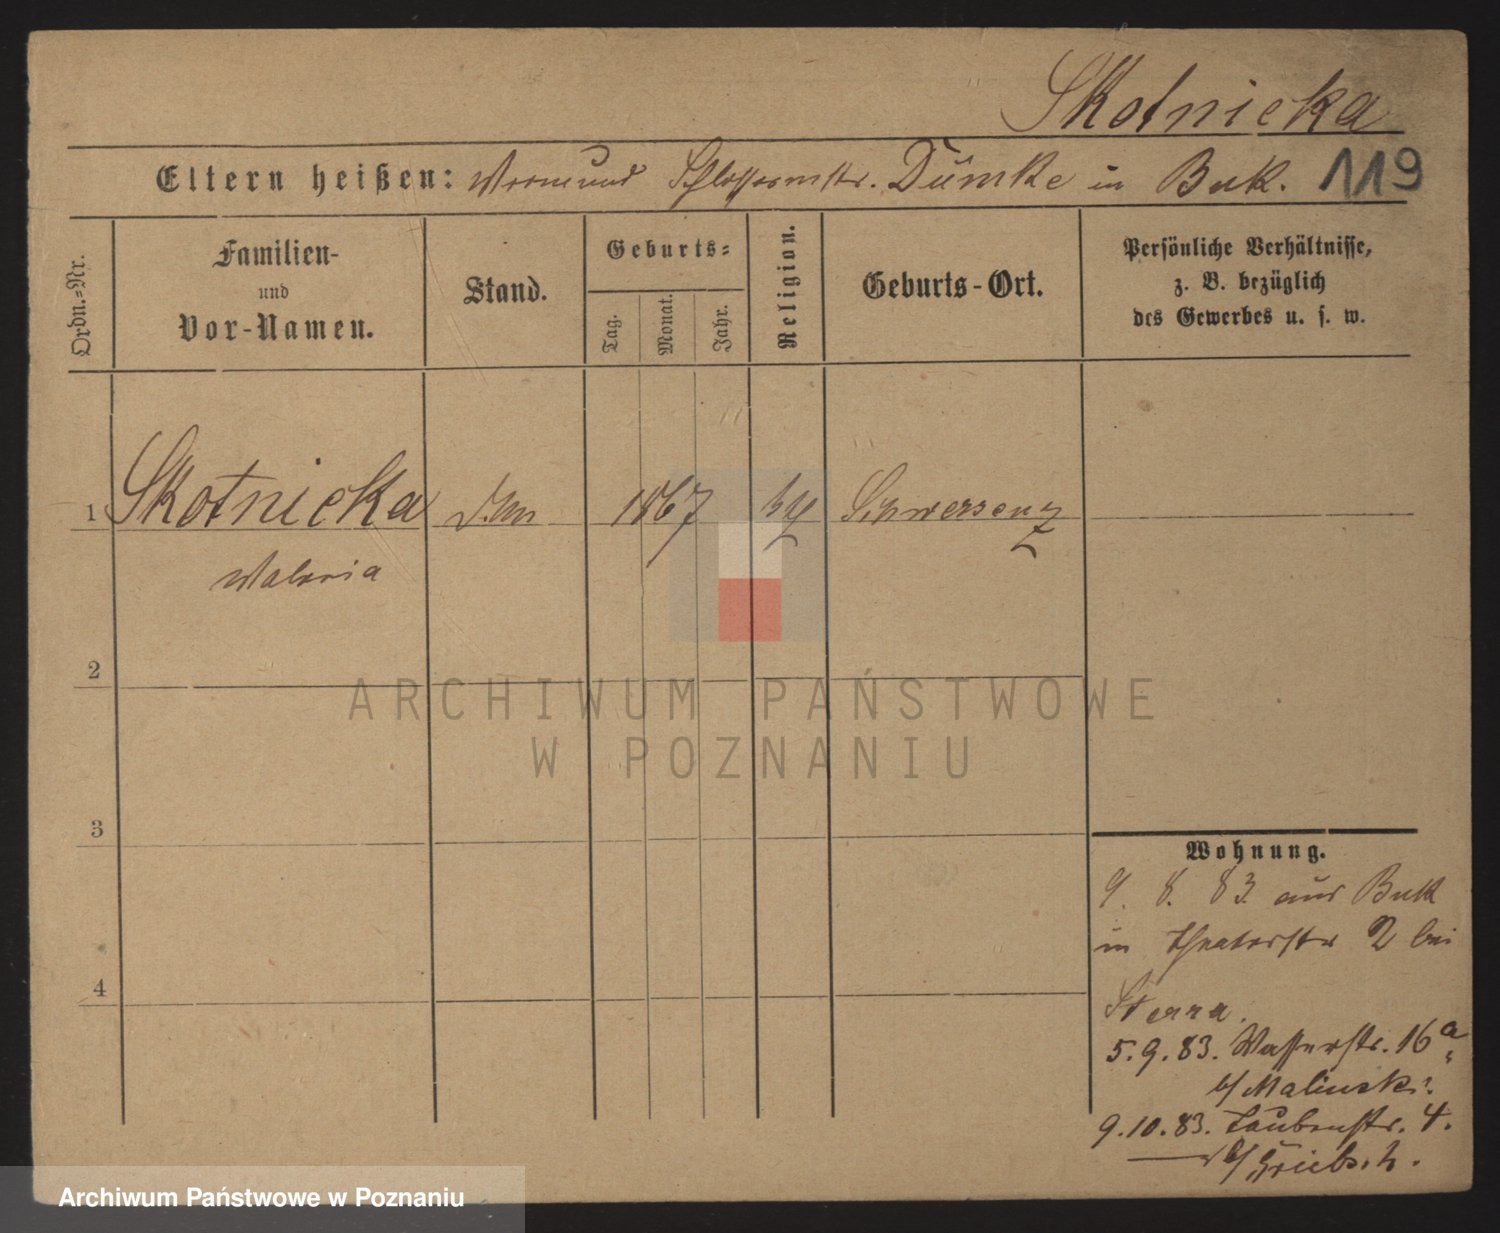 Skotnicka
Eltern heißen: Vormund Schlossermstr. Dümke in Buk. 119
Ordn.=Nr.
Familien-
und
Vor-Namen.
Stand.
Geburts=
Tag.
Monat.
Jahr.
Religion.
Geburts-Ort.
Persönliche Verhältnisse,
z. B. bezüglich
des Gewerbes u. s. w.
1 Skotnicka 1867 Schwersenz
Valeria
2
3
4
ARCHIWUM PAŃSTWOWE
W POZNANIU
Wohnung.
9. 8. 83 aus Buk
in Theaterstr 2 bei
5.9.83. Wasserstr. 16a
b/ Malinski.
9.10.83. Taubenstr. 4.
b/
Archiwum Państwowe w Poznaniu